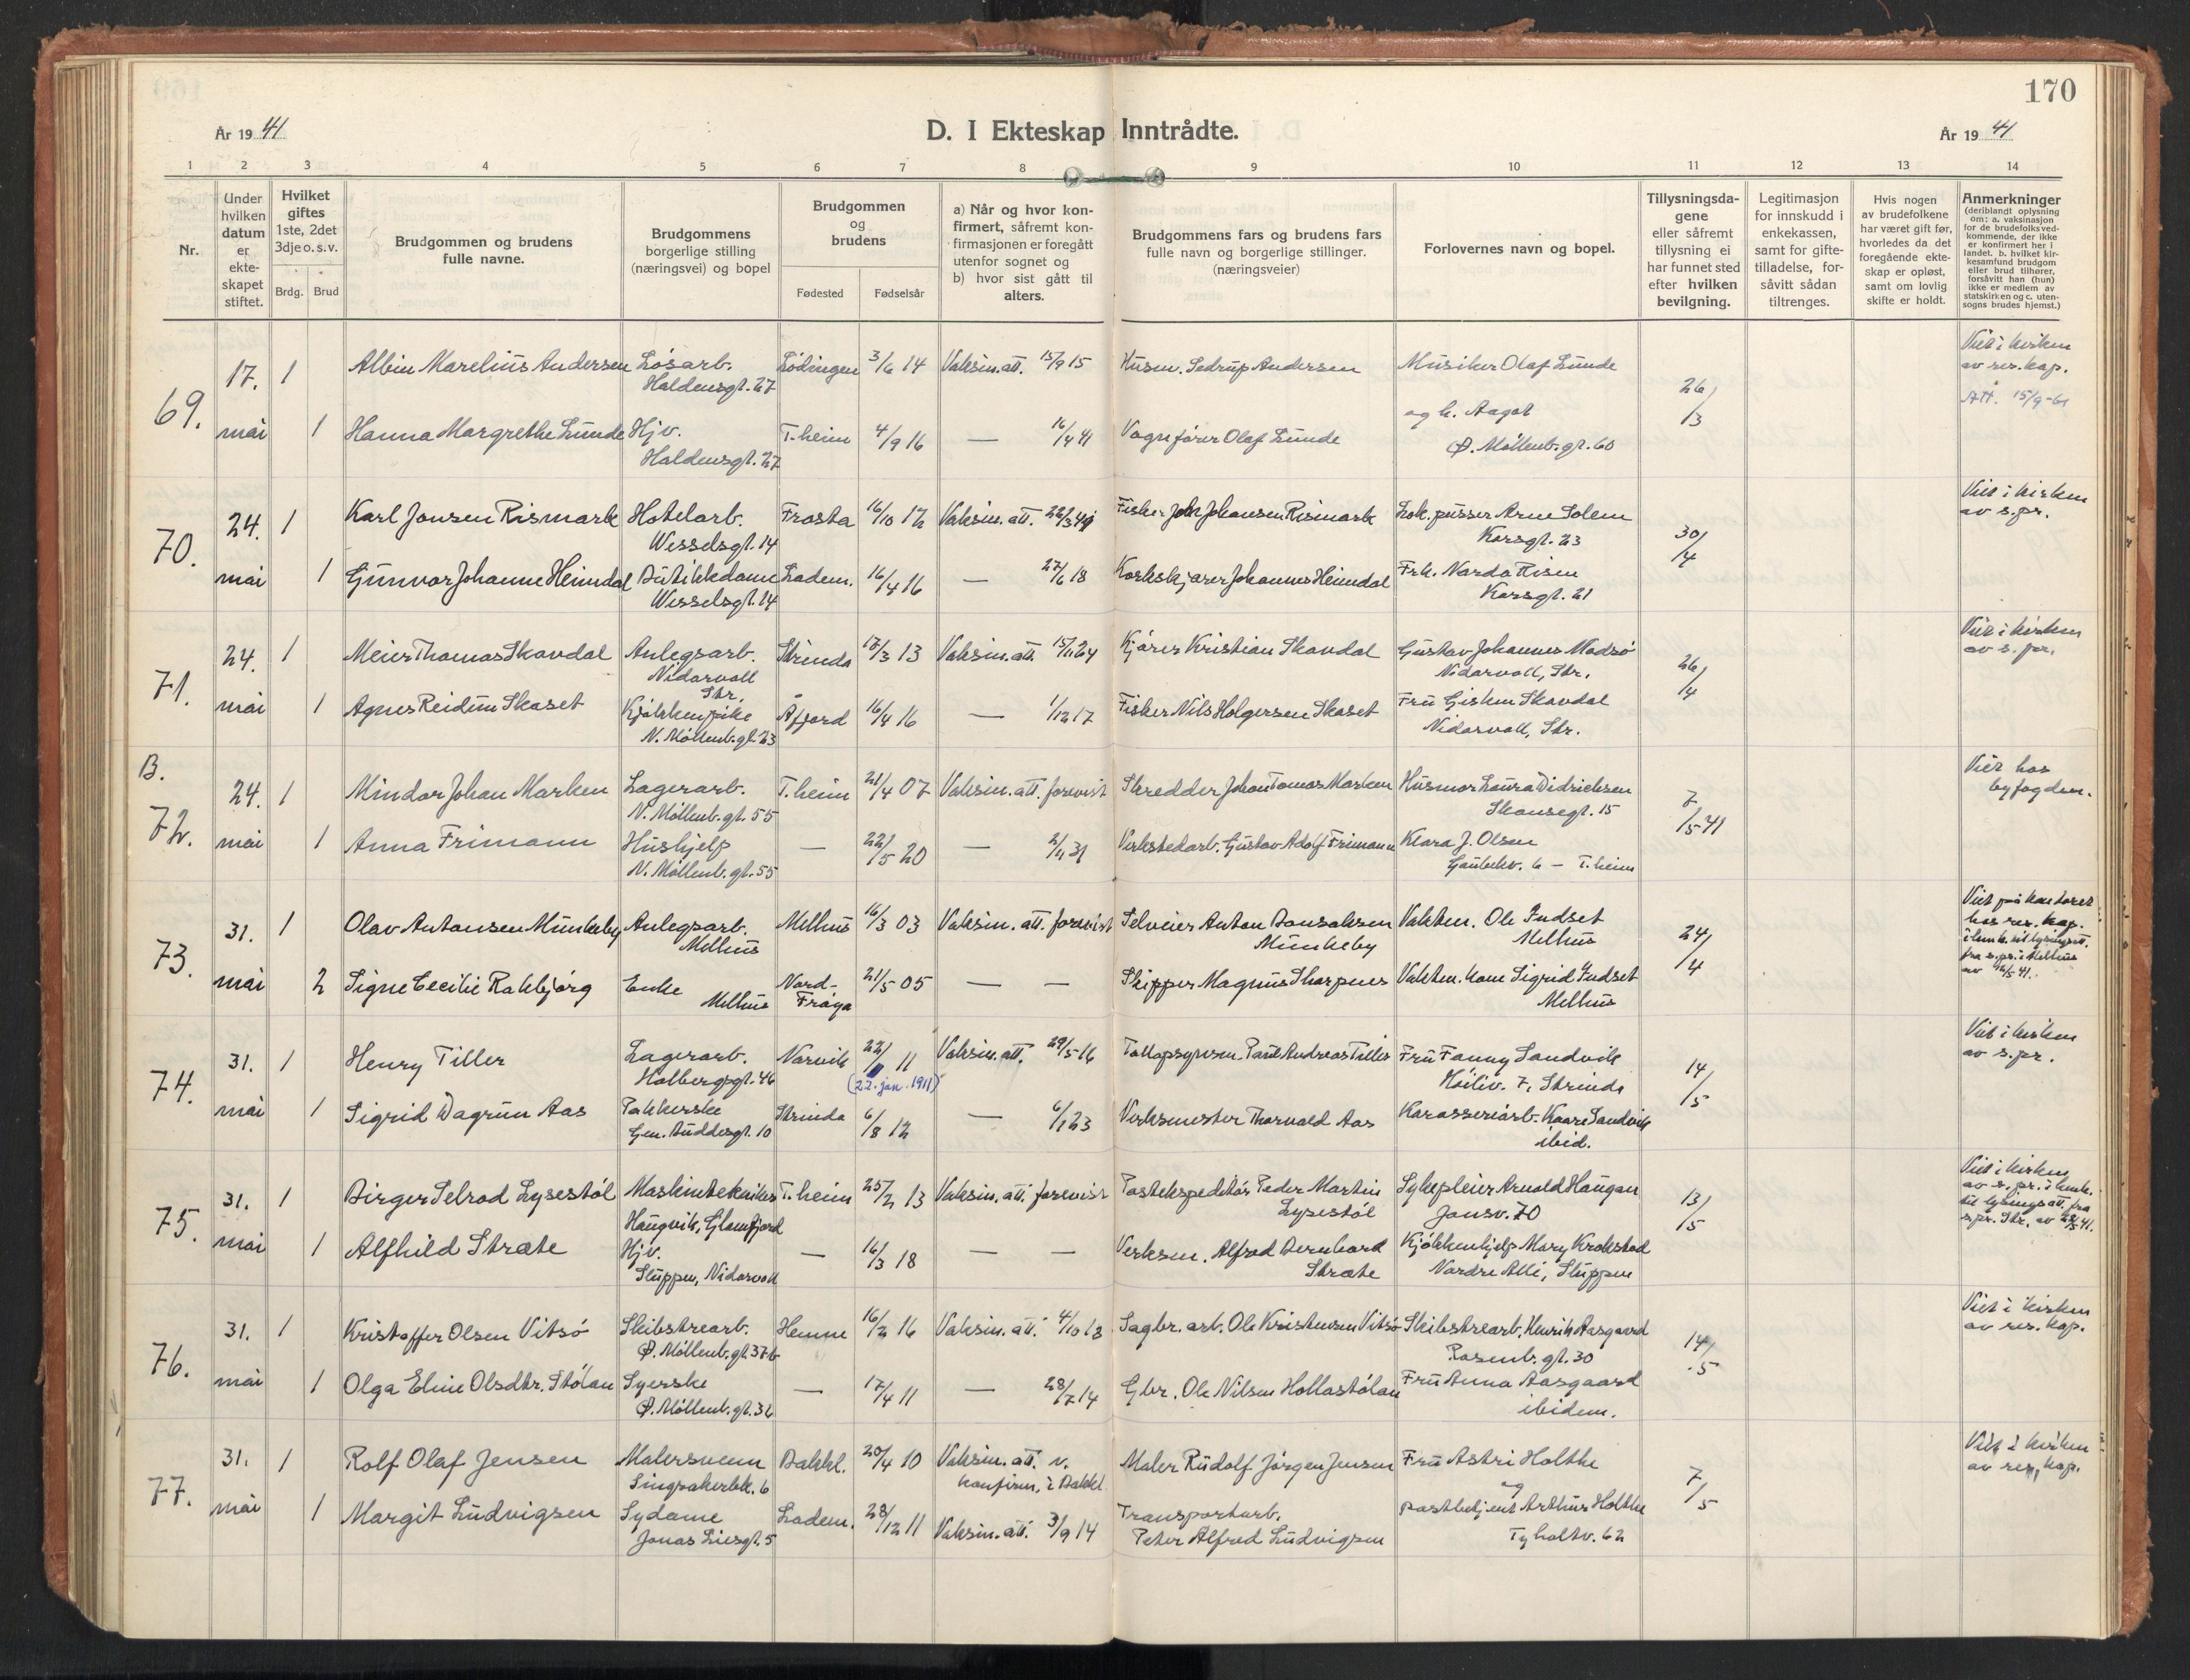 170
År 19 41
D. I Ekteskap Inntrådte.
År 19 41
1 2 3 4 5 6 7 8 9 10 11 12 13 14
Nr.
Under hvilken datum er ekteskapet stiftet.
Hvilket giftes 1ste, 2det 3dje o. s. v.
Brdg. Brud
Brudgommen og brudens fulle navne.
Brudgommens borgerlige stilling (næringsvei) og bopel
Brudgommen og brudens
Fødested Fødselsår
a) Når og hvor konfirmert, såfremt konfirmasjonen er foregått utenfor sognet og
b) hvor sist gått til alters.
Brudgommens fars og brudens fars fulle navn og borgerlige stillinger. (næringsveier)
Forlovernes navn og bopel.
Tillysningsdagene eller såfremt tillysning ei har funnet sted efter hvilken bevilgning.
Legitimasjon for innskudd i enkekassen, samt for giftetilladelse, forsåvitt sådan tiltrenges.
Hvis nogen av brudefolkene har været gift før, hvorledes da det foregående ekteskap er opløst, samt om lovlig skifte er holdt.
Anmerkninger (deriblandt oplysning om: a. vaksinasjon for de brudefolksvedkommende, der ikke er konfirmert her i landet. b. hvilket kirkesamfund brudgom eller brud tilhører, forsåvitt han (hun) ikke er medlem av statskirken og c. utensogns brudes hjemst.)
69. 17. mai
1 Albin Marelius Andersen Løsarb. Lødingen 3/6 14 Vaksin. att. 15/9 15 Husm. Sedrup Andersen Musiker Olaf Lunde 26/3 Viet i kirken
Haldensgt. 27 av res. kap.
og h. Aagot Att. 15/9-61
1 Hanna Margrethe Lunde Hjv. T.heim 4/9 16 — 16/4 41 Vognfører Olaf Lunde
Haldensgt. 27 Ø. Møllenb. gt. 60
70. 24. mai
1 Karl Jonsen Rismark Hotelarb. Frosta 16/10 12 Vaksin. att. Fisker Johansen Rismark Lok. pusser Arne Solem 30/4 Viet i kirken
Wesselsgt. 14 Korsgt. 23 av s. pr.
1 Gunvor Johanne Heimdal Butikkdame Ladem. 16/4 16 — 27/6 18 Korkskjærer Johannes Heimdal Frk. Narda Risen
Wesselsgt. 14 Korsgt. 21
71. 24. mai
1 Meier Thomas Skavdal Anlegsarb. Strinda 17/3 13 Vaksin. att. 15/11 24 Kjører Kristian Skavdal Gustav Johannes Madsø 26/4 Viet i kirken
Nidarvoll Str. Nidarvoll, Str. av s. pr.
1 Agnes Reidun Skaset Kjøkkenpike Åfjord 16/4 16 — 1/12 17 Fisker Nils Holgersen Skaset Fru Gisken Skavdal
N. Møllenb. gt. 23 Nidarvoll, Str.
B.
72. 24. mai
1 Mindor Johan Marken Lagerarb. T.heim 21/4 07 Vaksin. att. forevist Skredder Johan Tomas Marken Husmor Laura Didrichsen 7/5 41 Viet hos
N. Møllenb. gt. 55 Skansegt. 15 byfogden.
1 Anna Frimann Hushjelp — 22/5 20 — 2/11 31 Verkstedarb. Gustav Adolf Frimann Klara J. Olsen
N. Møllenb. gt. 55 Gaubekv. 6 — T.heim
73. 31. mai
1 Olav Antonsen Munkeby Anlegsarb. Melhus 16/3 03 Vaksin. att. forevist Selveier Anton Munkeby Vaktm. Ole Indset 24/4 Viet på kontoret
Melhus Melhus hos res. kap.
i henh. til lysingsatt.
fra s. pr. i Melhus
av 16/5 41.
2 Signe Cecilie Rakbjørg Enke Nord-Frøya 21/5 05 — — Skipper Magnus Tharpnes Vaktm. kone Sigrid Indset
Melhus Melhus
74. 31. mai
1 Henry Tiller Lagerarb. Narvik 22/1 11 Vaksin. att. 29/5 16 Tollopsynsm. Paul Andreas Tiller Fru Fanny Sandvik 14/5 Viet i kirken
Holbergsgt. 46 (22. jan. 1911) Høiliv. 7, Strinda av s. pr.
1 Sigrid Dagrun Aas Pakkerske Strinda 6/8 12 — 6/1 23 Verksmester Thorvald Aas Karosseriarb. Kaare Sandvik
Gen. Buddesgt. 10 ibid.
75. 31. mai
1 Birger Selrod Lysestøl Maskintekniker T.heim 25/2 13 Vaksin. att. forevist Postekspeditør Peder Martin Lysestøl Sykepleier Arnold Haugan 13/5 Viet i kirken
Haugvik, Glomfjord Jonsv. 70 av s. pr. i henh.
til lysingsatt. fra
s. pr. Str. av 28/5 41.
1 Alfhild Stræte Hjv. — 16/3 18 — — Verksm. Alfred Bernhard Stræte Kjøkkenhjelp Mary Krokstad
Sluppen, Nidarvoll Nordre Allé, Sluppen
76. 31. mai
1 Kristoffer Olsen Vitsø Skibstrearb. Hemne 16/2 16 Vaksin. att. 4/10 18 Sagbr. arb. Ole Kristensen Vitsø Skibstrearb. Henrik Aasgaard 14/5 Viet i kirken
Ø. Møllenb. gt. 37 b Rosenb. gt. 30 av res. kap.
1 Olga Eline Olsdtr. Stølan Syerske — 17/4 11 — 28/7 14 Gbr. Ole Nilsen Hollastølan Fru Anna Aasgaard
Ø. Møllenb. gt. 36 ibidem.
77. 31. mai
1 Rolf Olaf Jensen Malersvenn Bakkl. 20/4 10 Vaksin. att. v. konfirm. i Bakkl. Maler Rudolf Jørgen Jensen Fru Astri Holthe 7/5 Viet i kirken
Singsakerbk. 6 og av res. kap.
1 Margit Ludvigsen Sydame Ladem. 28/12 11 Vaksin. att. 3/9 14 Transportarb. Peter Alfred Ludvigsen postbetjent Arthur Holthe
Jonas Liesgt. 5 Tyholtv. 62